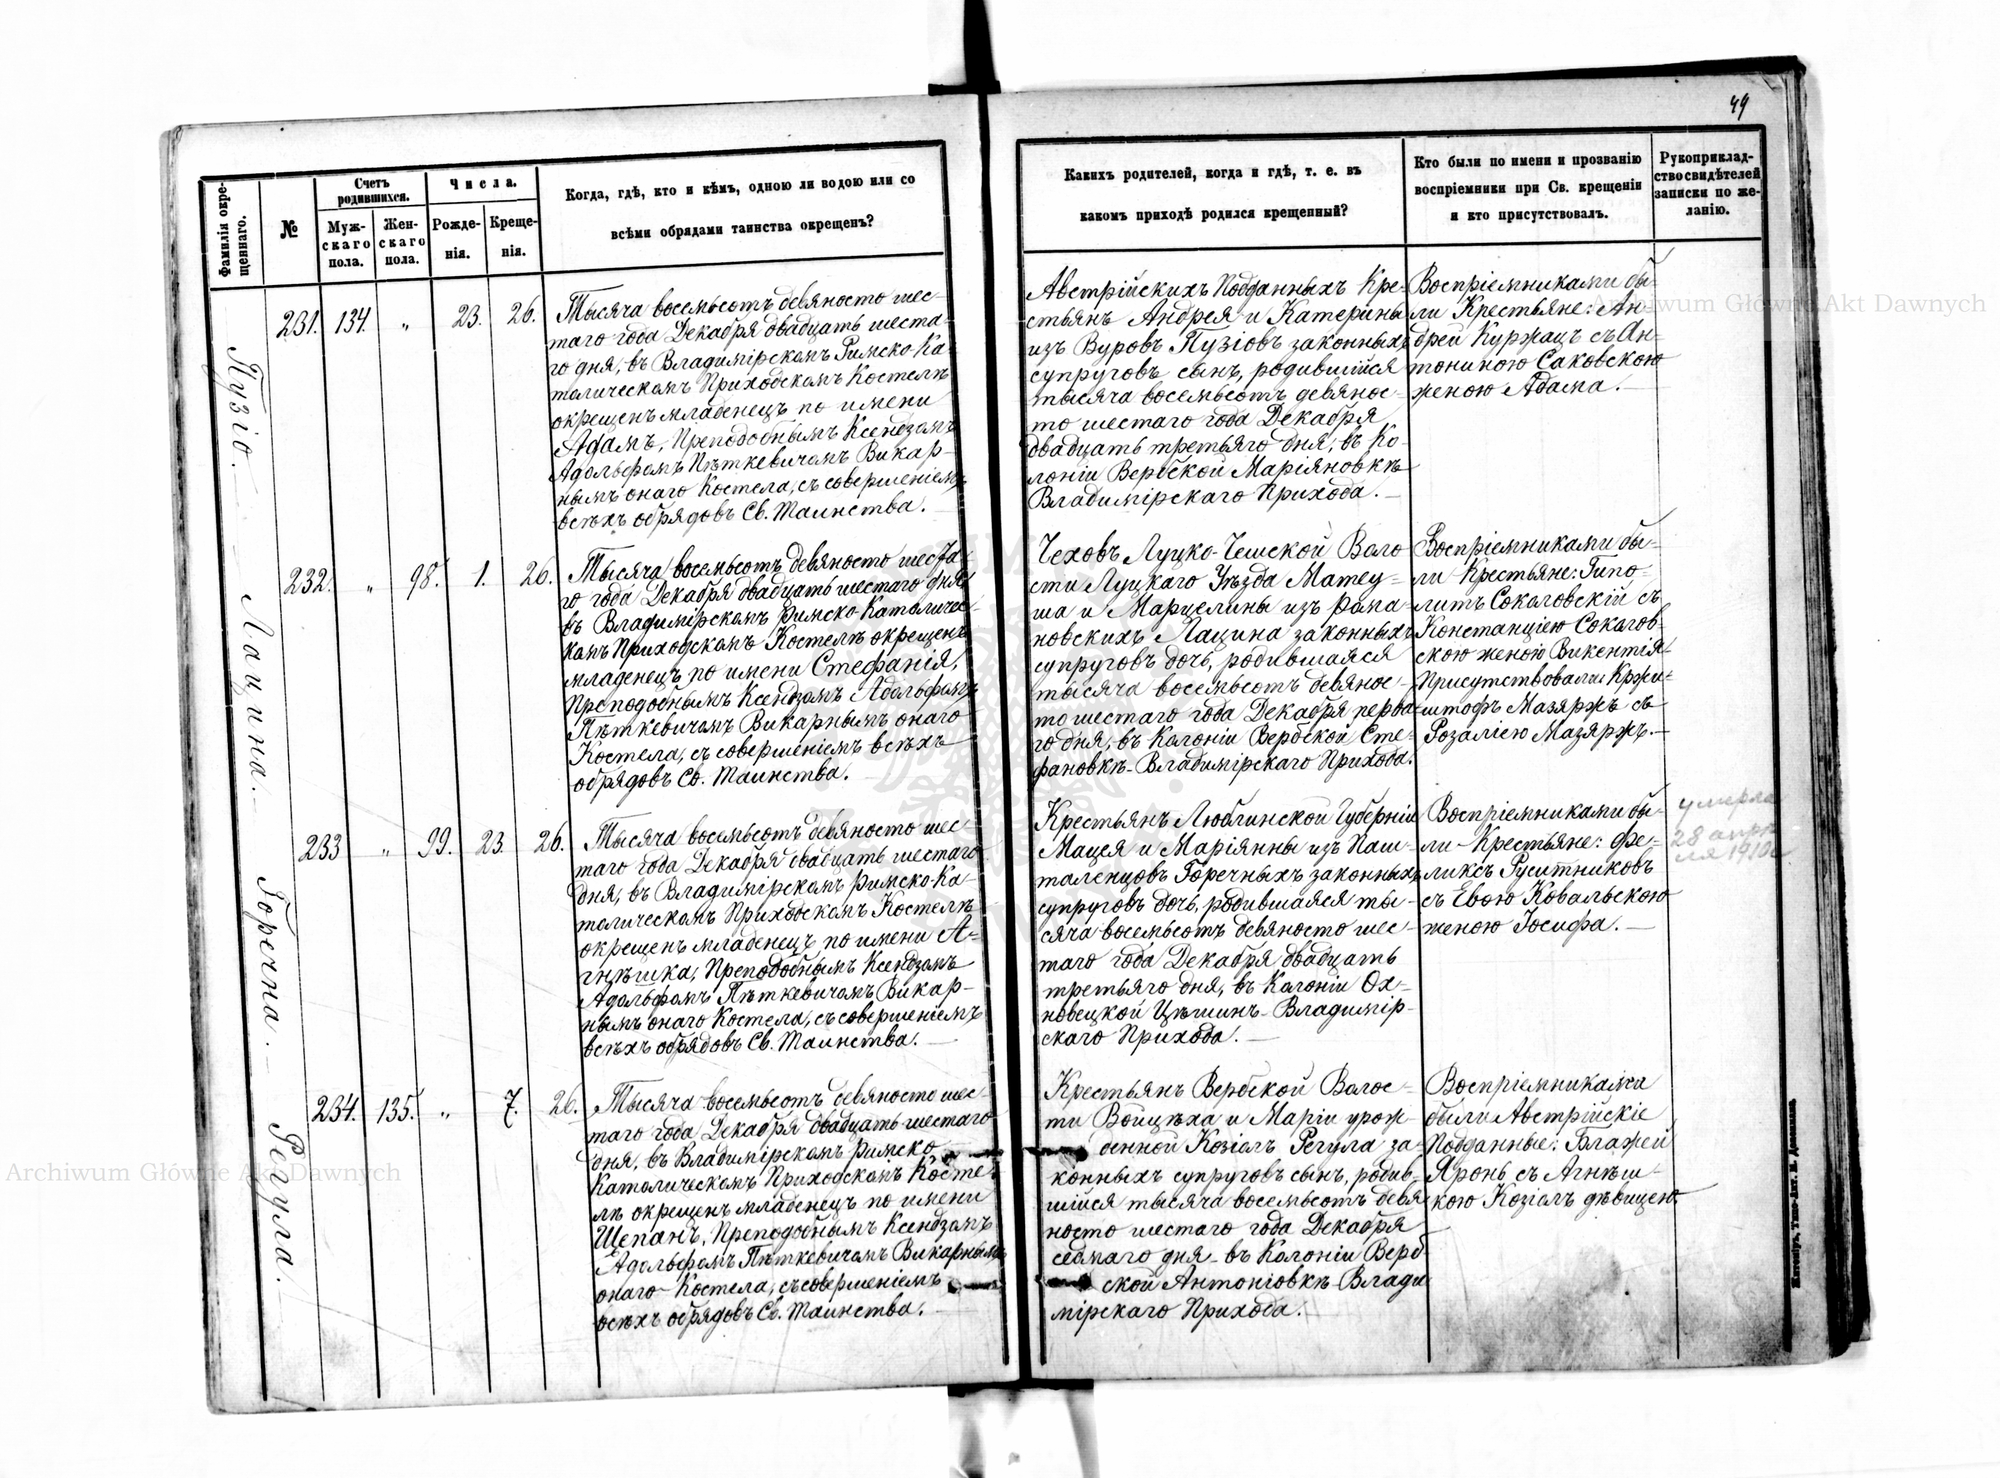 49
Фамилія окре-
щеннаго.
№
Счетъ
родившихся.
Муж-
скаго
пола.
Жен-
скаго
пола.
Числа.
Рожде-
нія.
Креще-
нія.
Когда, гдѣ, кто и кѣмъ, одною ли водою или со
всѣми обрядами таинства окрещенъ?
Какихъ родителей, когда и гдѣ, т. е. въ
какомъ приходѣ родился крещенный?
Кто были по имени и прозванію
воспріемники при Св. крещеніи
и кто присутствовалъ.
Рукоприклад-
ство свидѣтелей
записки по же-
ланію.
Пузіо.
231. 134. „ 23. 26.
Тысяча восемьсотъ девяносто шес-
таго года Декабря двадцать шеста-
го дня, въ Владимірскомъ Римско-Ка-
толическомъ Приходскомъ Костелѣ
окрещенъ младенецъ по имени
Адамъ, Преподобнымъ Ксендзомъ
Адольфомъ Пѣткевичомъ Викар-
нымъ онаго Костела, съ совершеніемъ
всѣхъ обрядовъ Св. Таинства.
Австрійскихъ Подданныхъ Кре-
стьянъ Андрея и Катерины
изъ Вуровъ Пузіовъ законныхъ
супруговъ сынъ, родившійся
тысяча восемьсотъ девянос-
то шестаго года Декабря
двадцать третьяго дня, въ Ко-
лоніи Вербской Маріяновкѣ
Владимірскаго Прихода.
Воспріемниками бы-
ли Крестьяне: Ан-
дрей Куржацъ съ Ан-
тониною Саковскою
женою Адама.
Лацина.
232. „ 98. 1. 26.
Тысяча восемьсотъ девяносто шеста-
го года Декабря двадцать шестаго дня
въ Владимірскомъ Римско-Католичес-
комъ Приходскомъ Костелѣ окрещенъ
младенецъ по имени Стефанія,
Преподобнымъ Ксендзомъ Адольфомъ
Пѣткевичомъ Викарнымъ онаго
Костела, съ совершеніемъ всѣхъ
обрядовъ Св. Таинства.
Чеховъ Луцко-Чешской Воло
сти Луцкаго Уѣзда Матеу-
ша и Марцелины изъ Рома-
новскихъ Лацина законныхъ
супруговъ дочь, родившаяся
тысяча восемьсотъ девянос-
то шестаго года Декабря перва-
го дня, въ Колоніи Вербской Сте-
фановкѣ Владимірскаго Прихода.
Воспріемниками бы-
ли Крестьяне: Гипо-
литъ Соколовскій съ
Констанціею Соколов-
скою женою Викентія.
Присутствовали Кржи-
штофъ Мазяржъ съ
Розаліею Мазяржъ.
Горечна.
233 „ 99. 23. 26.
Тысяча восемьсотъ девяносто шес-
таго года Декабря двадцать шестаго
дня, въ Владимірскомъ Римско-Ка-
толическомъ Приходскомъ Костелѣ
окрещенъ младенецъ по имени А-
гнѣшка, Преподобнымъ Ксендзомъ
Адольфомъ Пѣткевичомъ Викар-
нымъ онаго Костела, съ совершеніемъ
всѣхъ обрядовъ Св. Таинства.
Крестьянъ Люблинской Губерніи
Мацея и Маріянны изъ Паш-
таленцовъ Горечныхъ законныхъ
супруговъ дочь, родившаяся ты-
сяча восемьсотъ девяносто шес-
таго года Декабря двадцать
третьяго дня, въ Колоніи Ох-
новецкой Цѣшинъ Владимір-
скаго Прихода.
Воспріемниками бы-
ли Крестьяне: Фе-
ликсъ Руситниковъ
съ Евою Ковальскою
женою Іосифа.
умерла
28 апрѣ
ля 1910г
Регула.
234. 135. „ 7. 26.
Тысяча восемьсотъ девяносто шес-
таго года Декабря двадцать шестаго
дня, въ Владимірскомъ Римско
Католическомъ Приходскомъ Косте-
лѣ окрещенъ младенецъ по имени
Щепанъ, Преподобнымъ Ксендзомъ
Адольфомъ Пѣткевичомъ Викарнымъ
онаго Костела, съ совершеніемъ
всѣхъ обрядовъ Св. Таинства.
Крестьянъ Вербской Волос-
ти Войцѣха и Маріи урож-
денной Козіолъ Регула за-
конныхъ супруговъ сынъ, родив-
шійся тысяча восемьсотъ девя
носто шестаго года Декабря
седмаго дня въ Колоніи Верб
ской Антоніовкѣ Влади
мірскаго Прихода.
Воспріемниками
были Австрійскіе
Подданные: Блажей
Яронь съ Агнѣш-
кою Козіолъ дѣвицею.
Archiwum Główne Akt Dawnych
Archiwum Główne Akt Dawnych